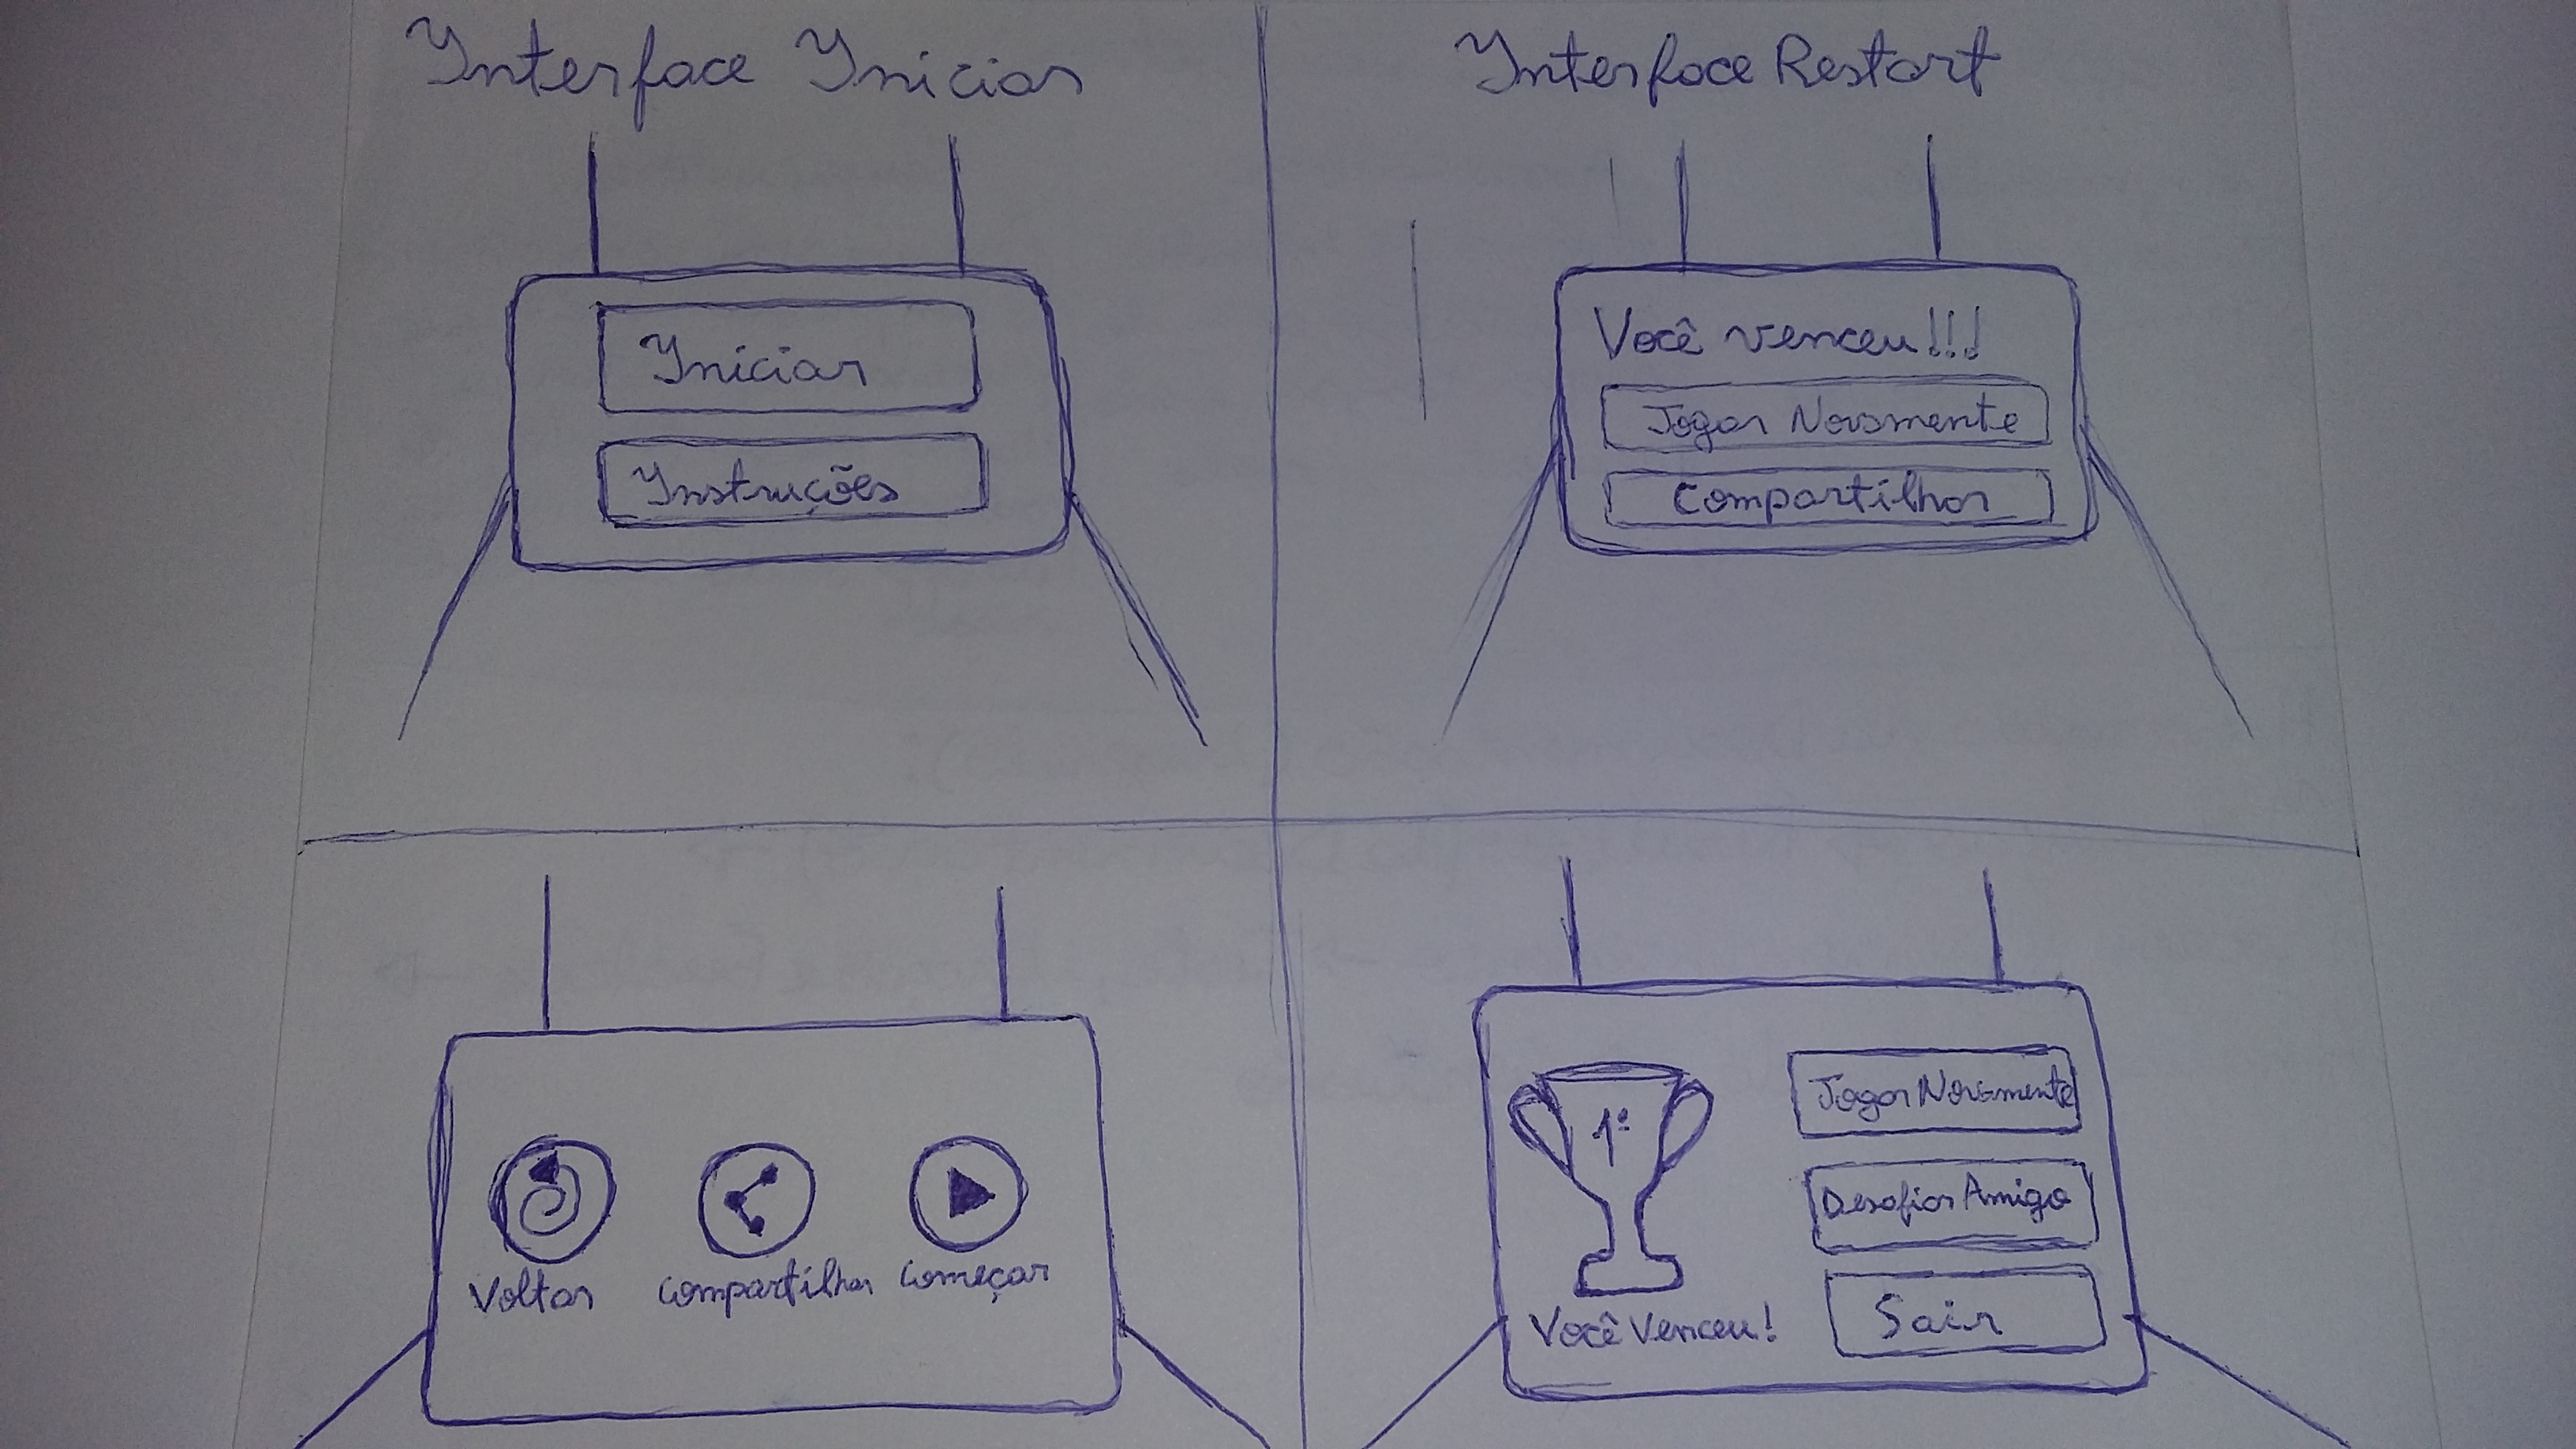 Interface Iniciar
Iniciar
Instruções
Interface Restart
Você venceu!!!
Jogar Novamente
Compartilhar
Voltar
Compartilhar
Começar
1º
Você Venceu!
Jogar Novamente
Desafiar Amigo
Sair